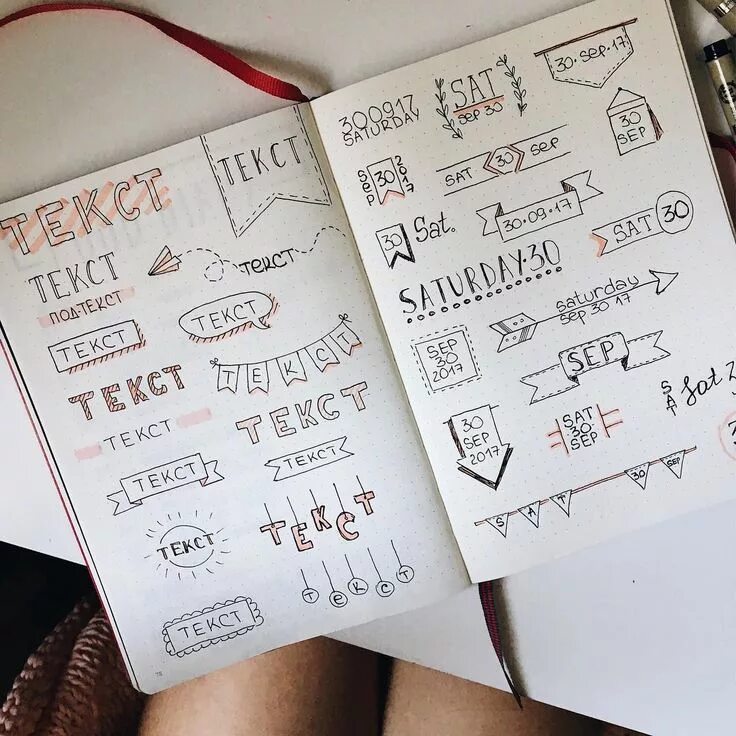 ТЕКСТ
ТЕКСТ
ТЕКСТ
ПОД-ТЕКСТ
ТЕКСТ
ТЕКСТ
ТЕКСТ
ТЕКСТ
ТЕКСТ
ТЕКСТ
ТЕКСТ
ТЕКСТ
ТЕКСТ
ТЕКСТ
ТЕКСТ
ТЕКСТ
ТЕКСТ
ТЕКСТ
300917
SATURDAY
SAT
sep 30
30·sep·17
30
SEP
SEP 30 2017
SAT 30 sep
30
Sat.
30·09·17
SAT 30
SATURDAY·30
saturday
sep 30 17
SEP
30
2017
SEP
SAT
Sat
30
SEP
2017
SAT
30
SEP
S A T 30 SEP